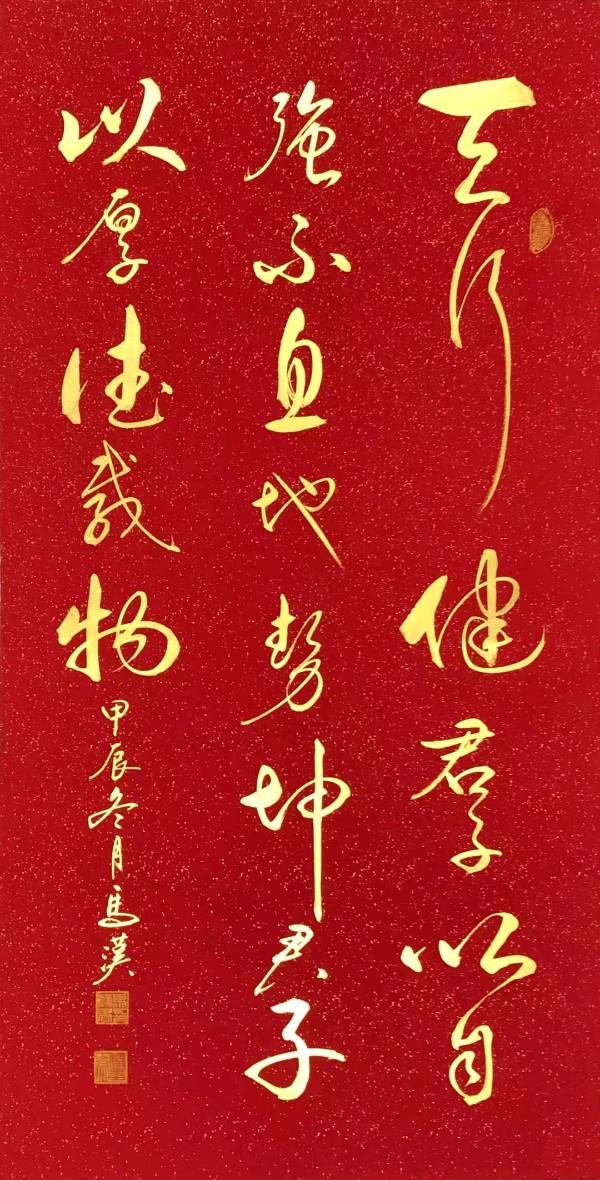 天行健君子以自
强不息地势坤君子
以厚德载物
甲辰冬月馬漢